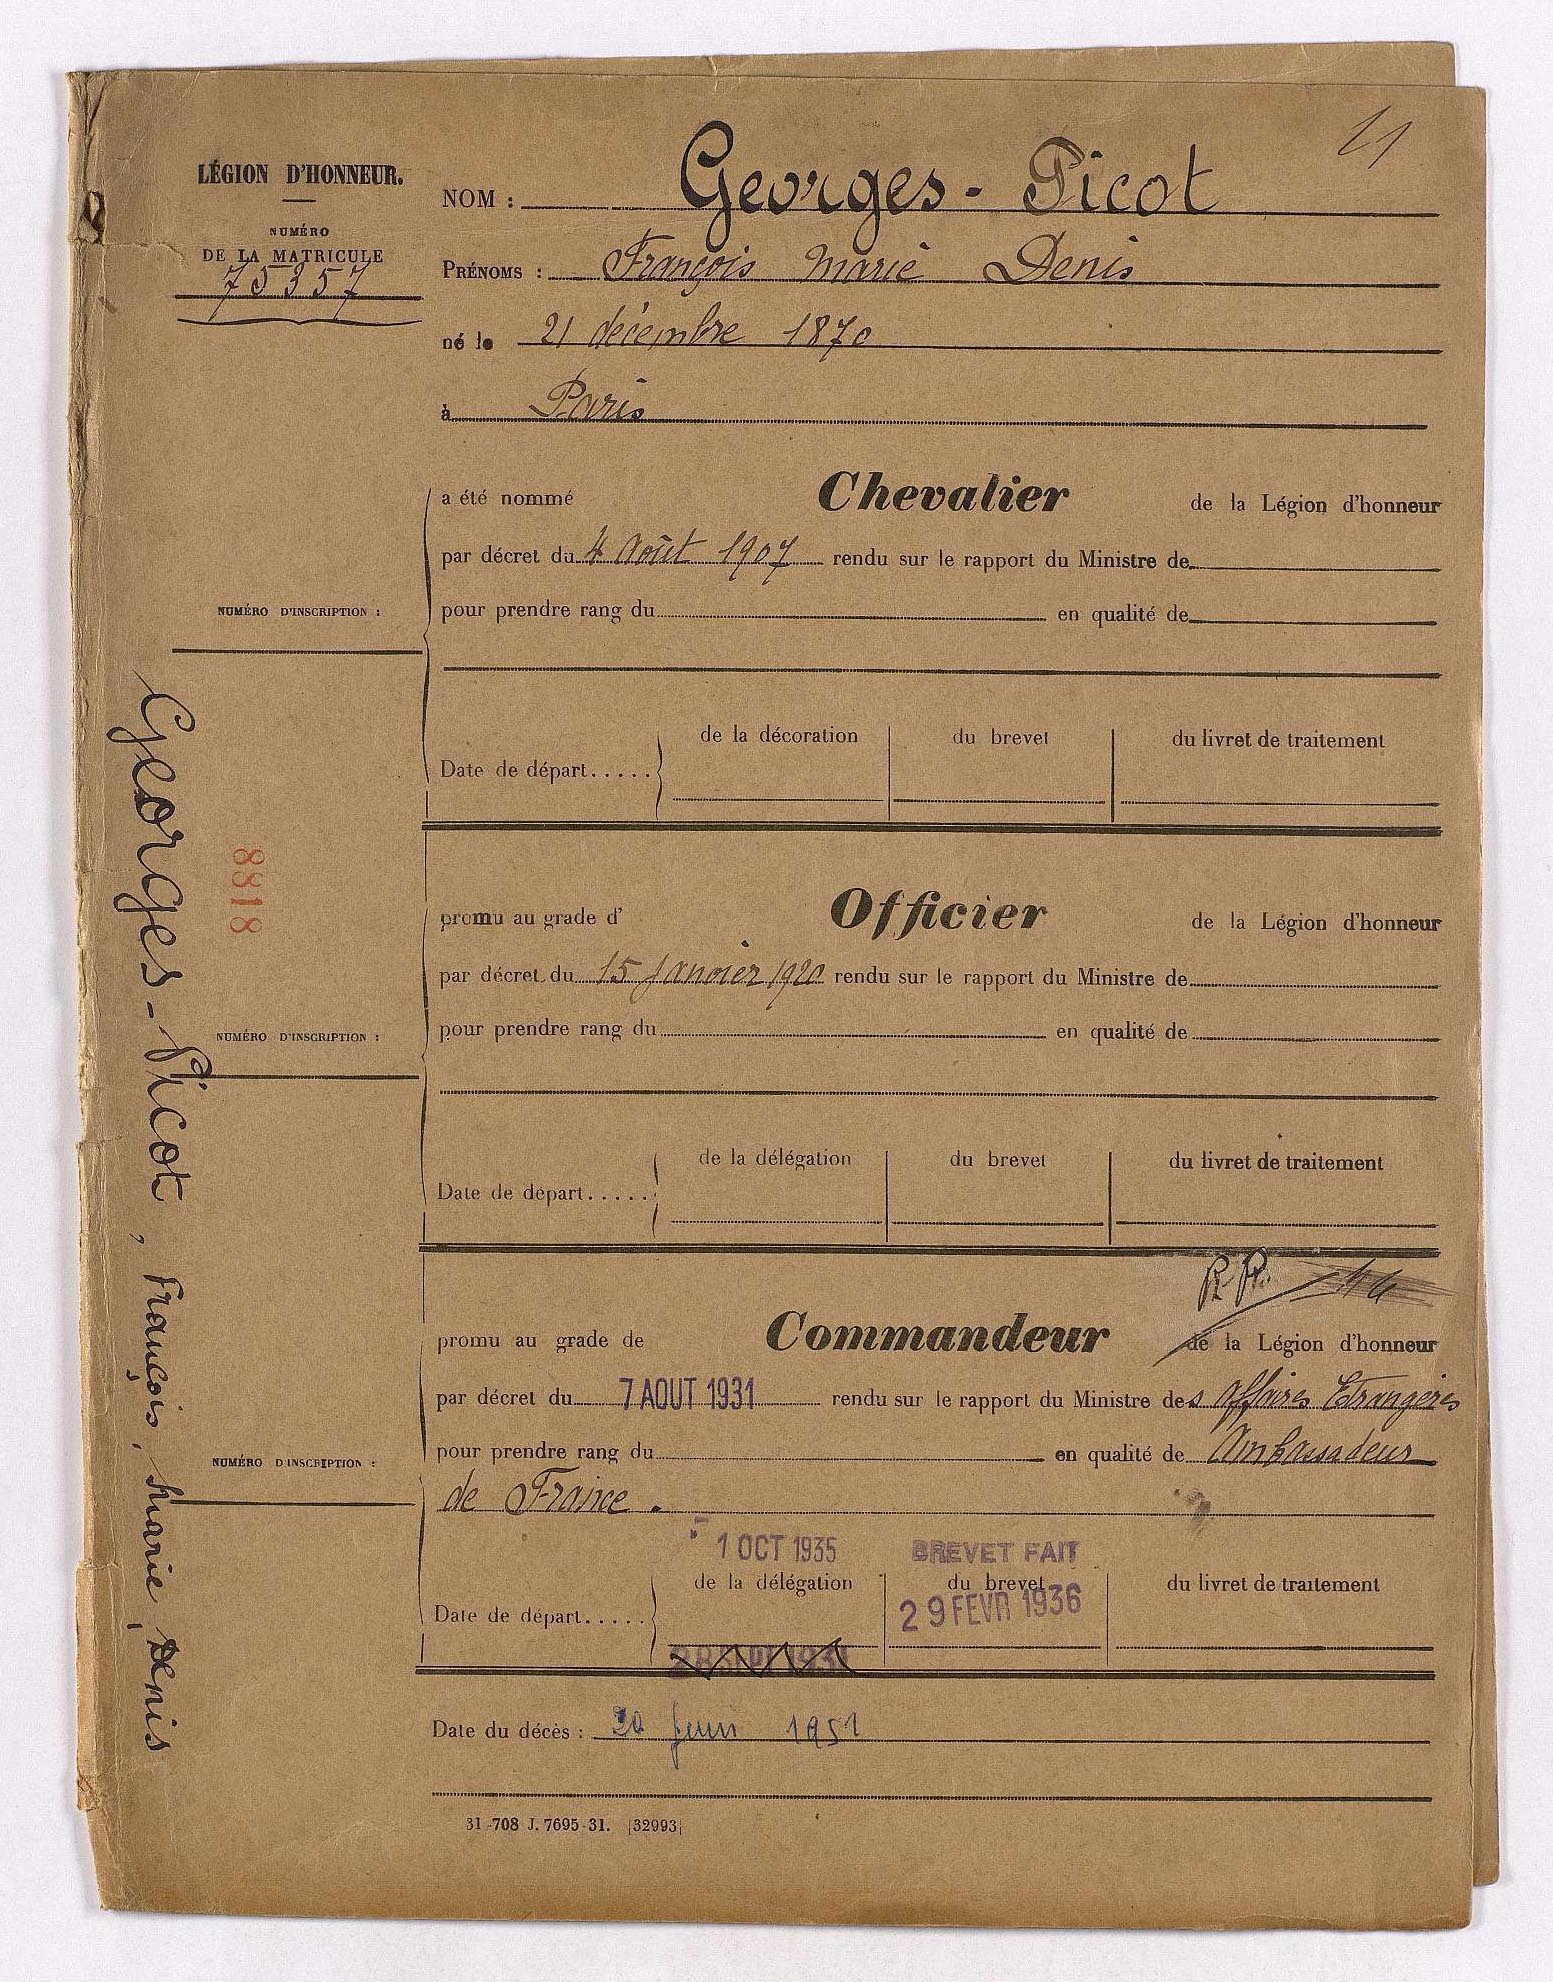 11
LÉGION D'HONNEUR.
NUMÉRO
DE LA MATRICULE
75357
NOM : Georges-Picot
PRÉNOMS : François Marie Denis
né le 21 décembre 1870
à Paris
a été nommé Chevalier de la Légion d'honneur
par décret du 4 Août 1907 rendu sur le rapport du Ministre de
NUMÉRO D'INSCRIPTION :
pour prendre rang du en qualité de
de la décoration du brevet du livret de traitement
Date de départ.....
8818
promu au grade d' Officier de la Légion d'honneur
par décret du 15 Janvier 1920 rendu sur le rapport du Ministre de
NUMÉRO D'INSCRIPTION :
pour prendre rang du en qualité de
de la délégation du brevet du livret de traitement
Date de départ.....
promu au grade de Commandeur de la Légion d'honneur
par décret du 7 AOUT 1931 rendu sur le rapport du Ministre des Affaires Etrangères
NUMÉRO D'INSCRIPTION :
pour prendre rang du en qualité de Ambassadeur
de France.
1 OCT 1935 BREVET FAIT
de la délégation du brevet du livret de traitement
Date de départ..... 29 FEVR 1936
Date du décès : 20 juin 1951
31-708 J. 7695-31. [32993]
Georges-Picot, François, Marie, Denis